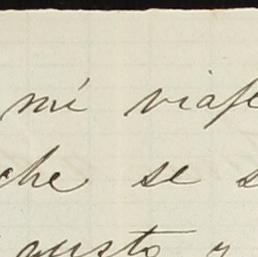 mi viaje
che se s
gusto y